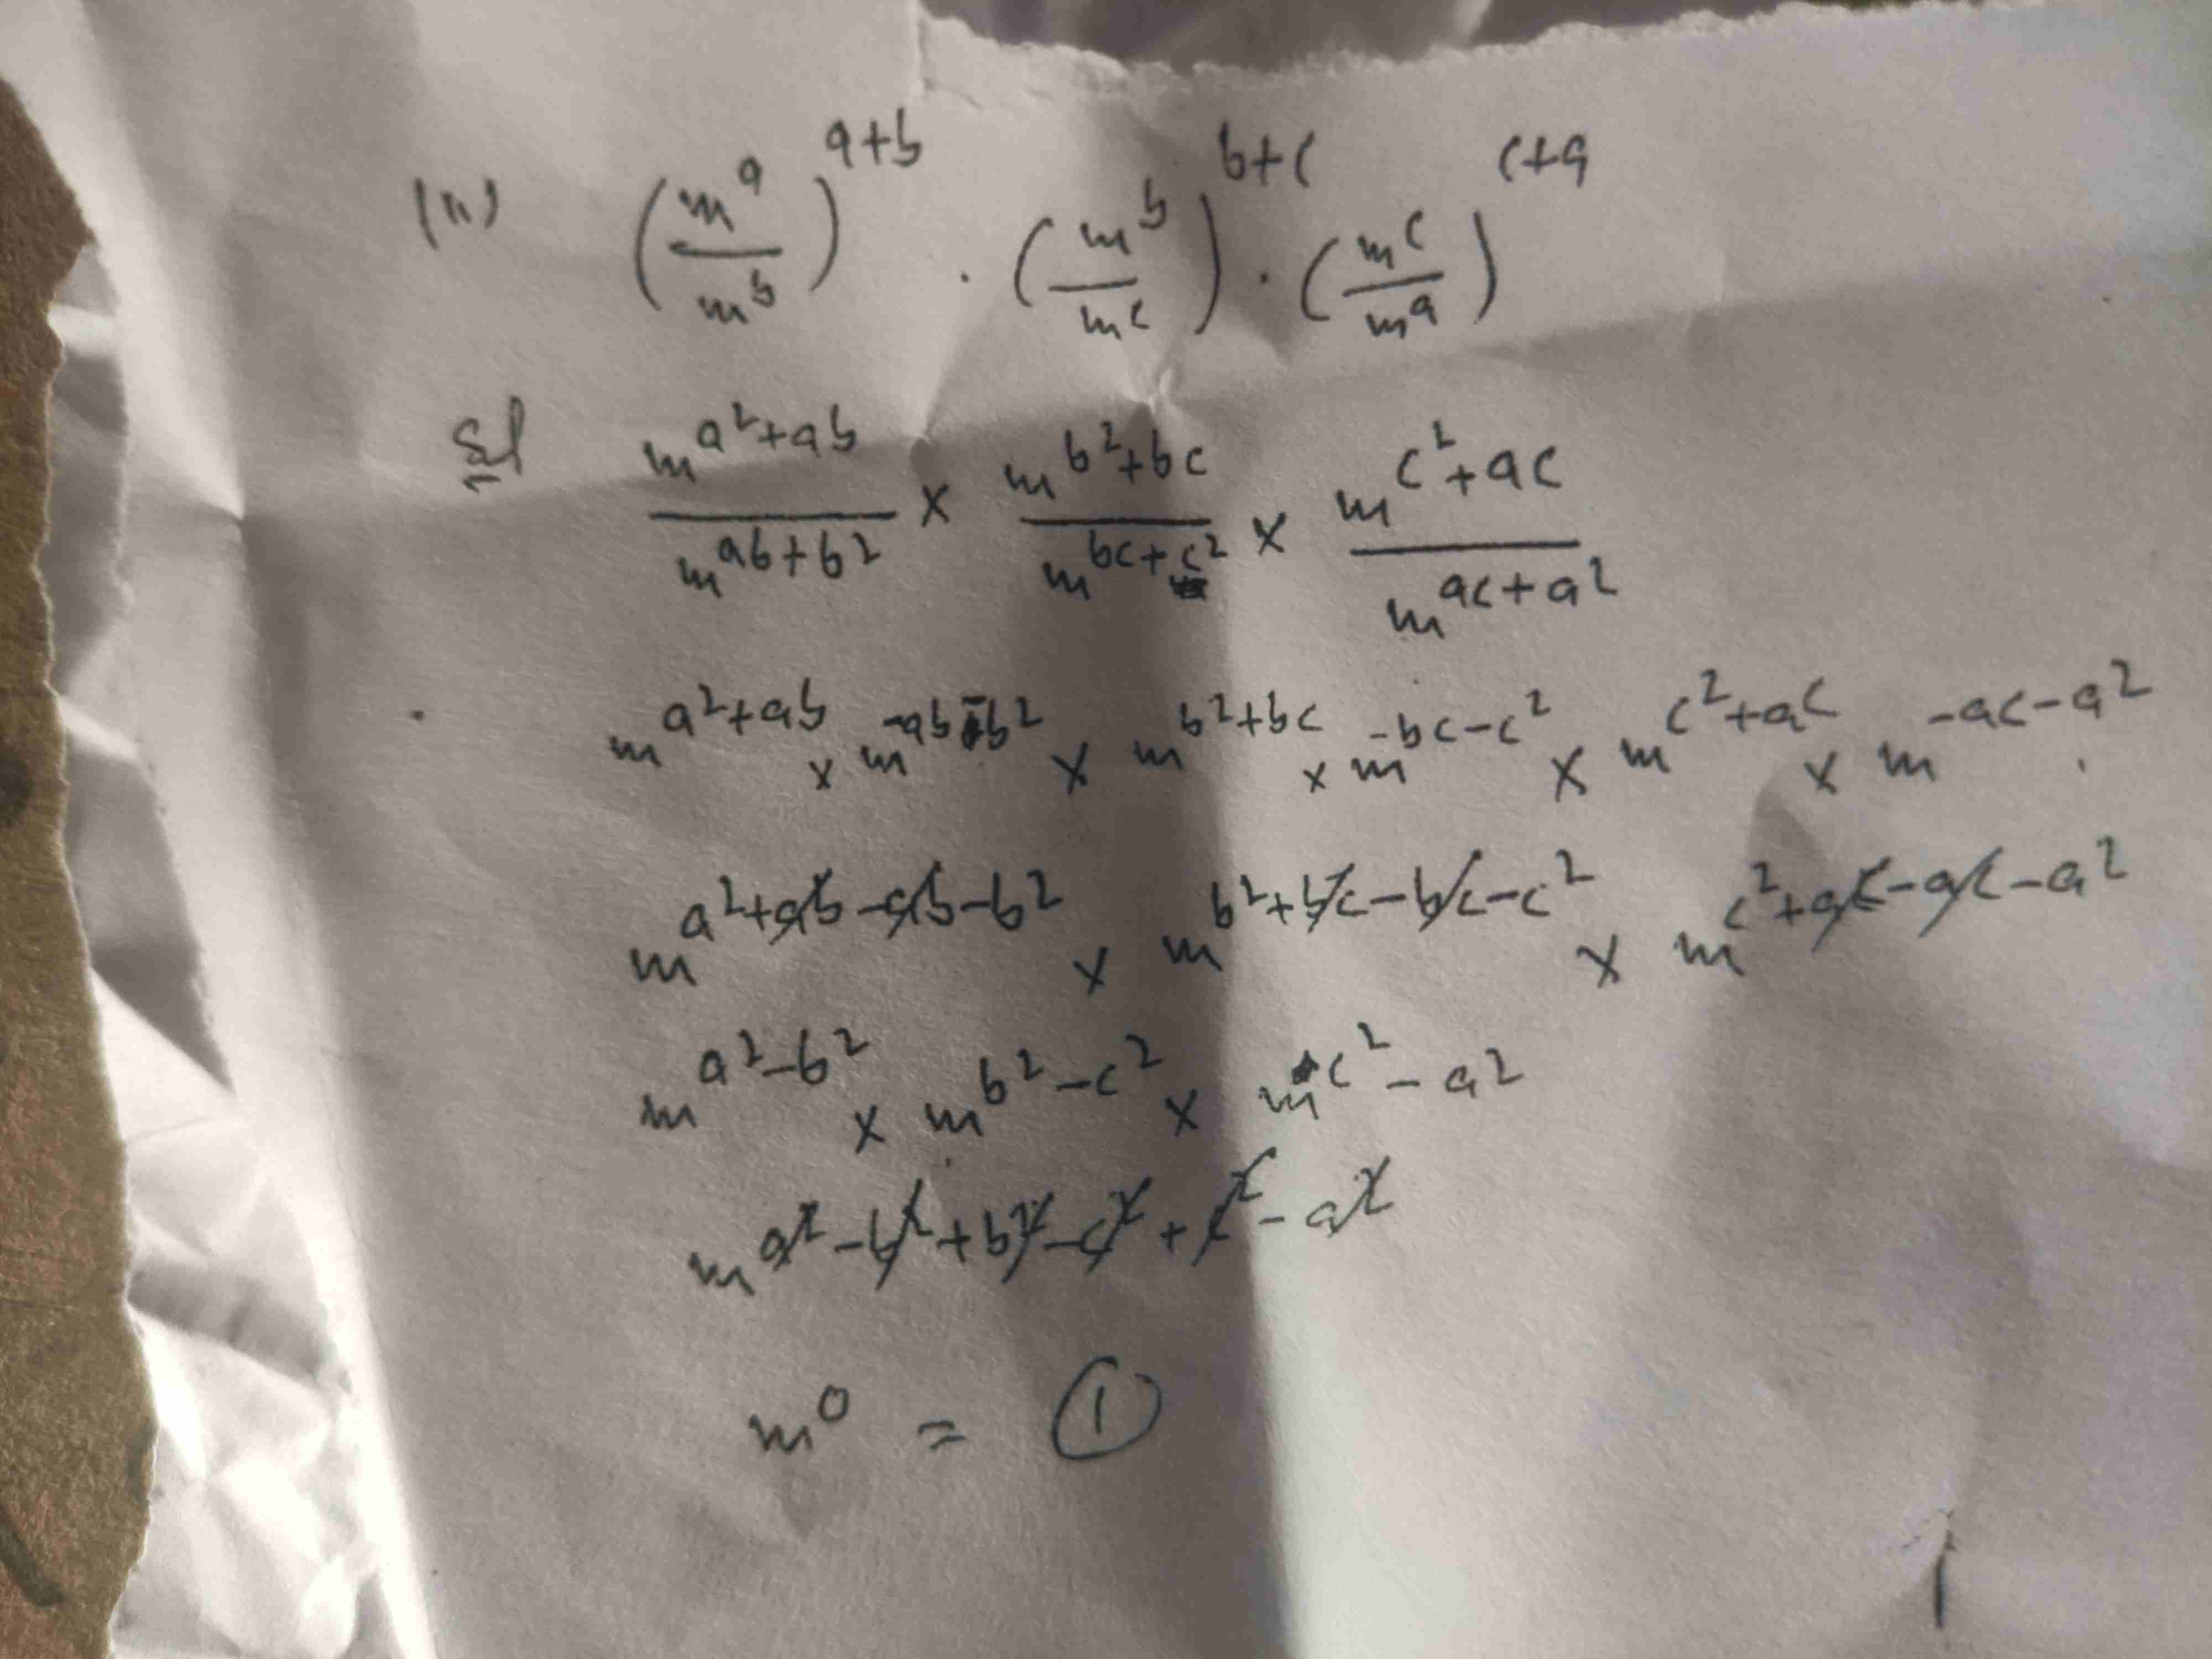 (ii) (m^a/m^b)^a+b · (m^b/m^c)^b+c · (m^c/m^a)^c+a
Sol m^a²+ab/m^ab+b² × m^b²+bc/m^bc+c² × m^c²+ac/m^ac+a²
m^a²+ab × m^-ab-b² × m^b²+bc × m^-bc-c² × m^c²+ac × m^-ac-a²
m^a²+ab-ab-b² × m^b²+bc-bc-c² × m^c²+ac-ac-a²
m^a²-b² × m^b²-c² × m^c²-a²
m^a²-b²+b²-c²+c²-a²
m^0 = 1